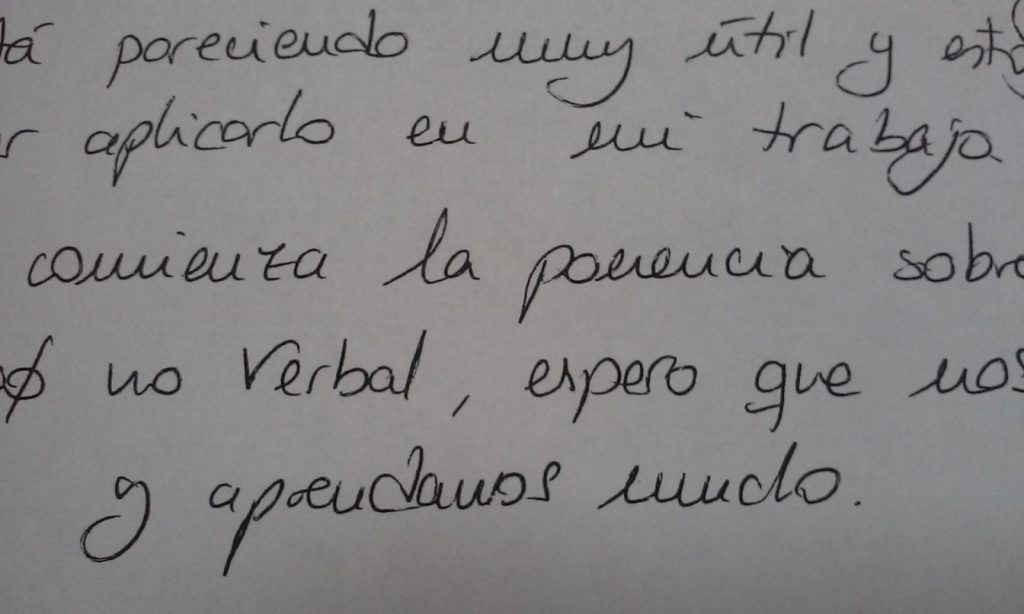 tá pareciendo muy útil y est
r aplicarlo en mi trabajo
comienza la ponencia sobre
no verbal, espero que nos
y aprendamos mucho.